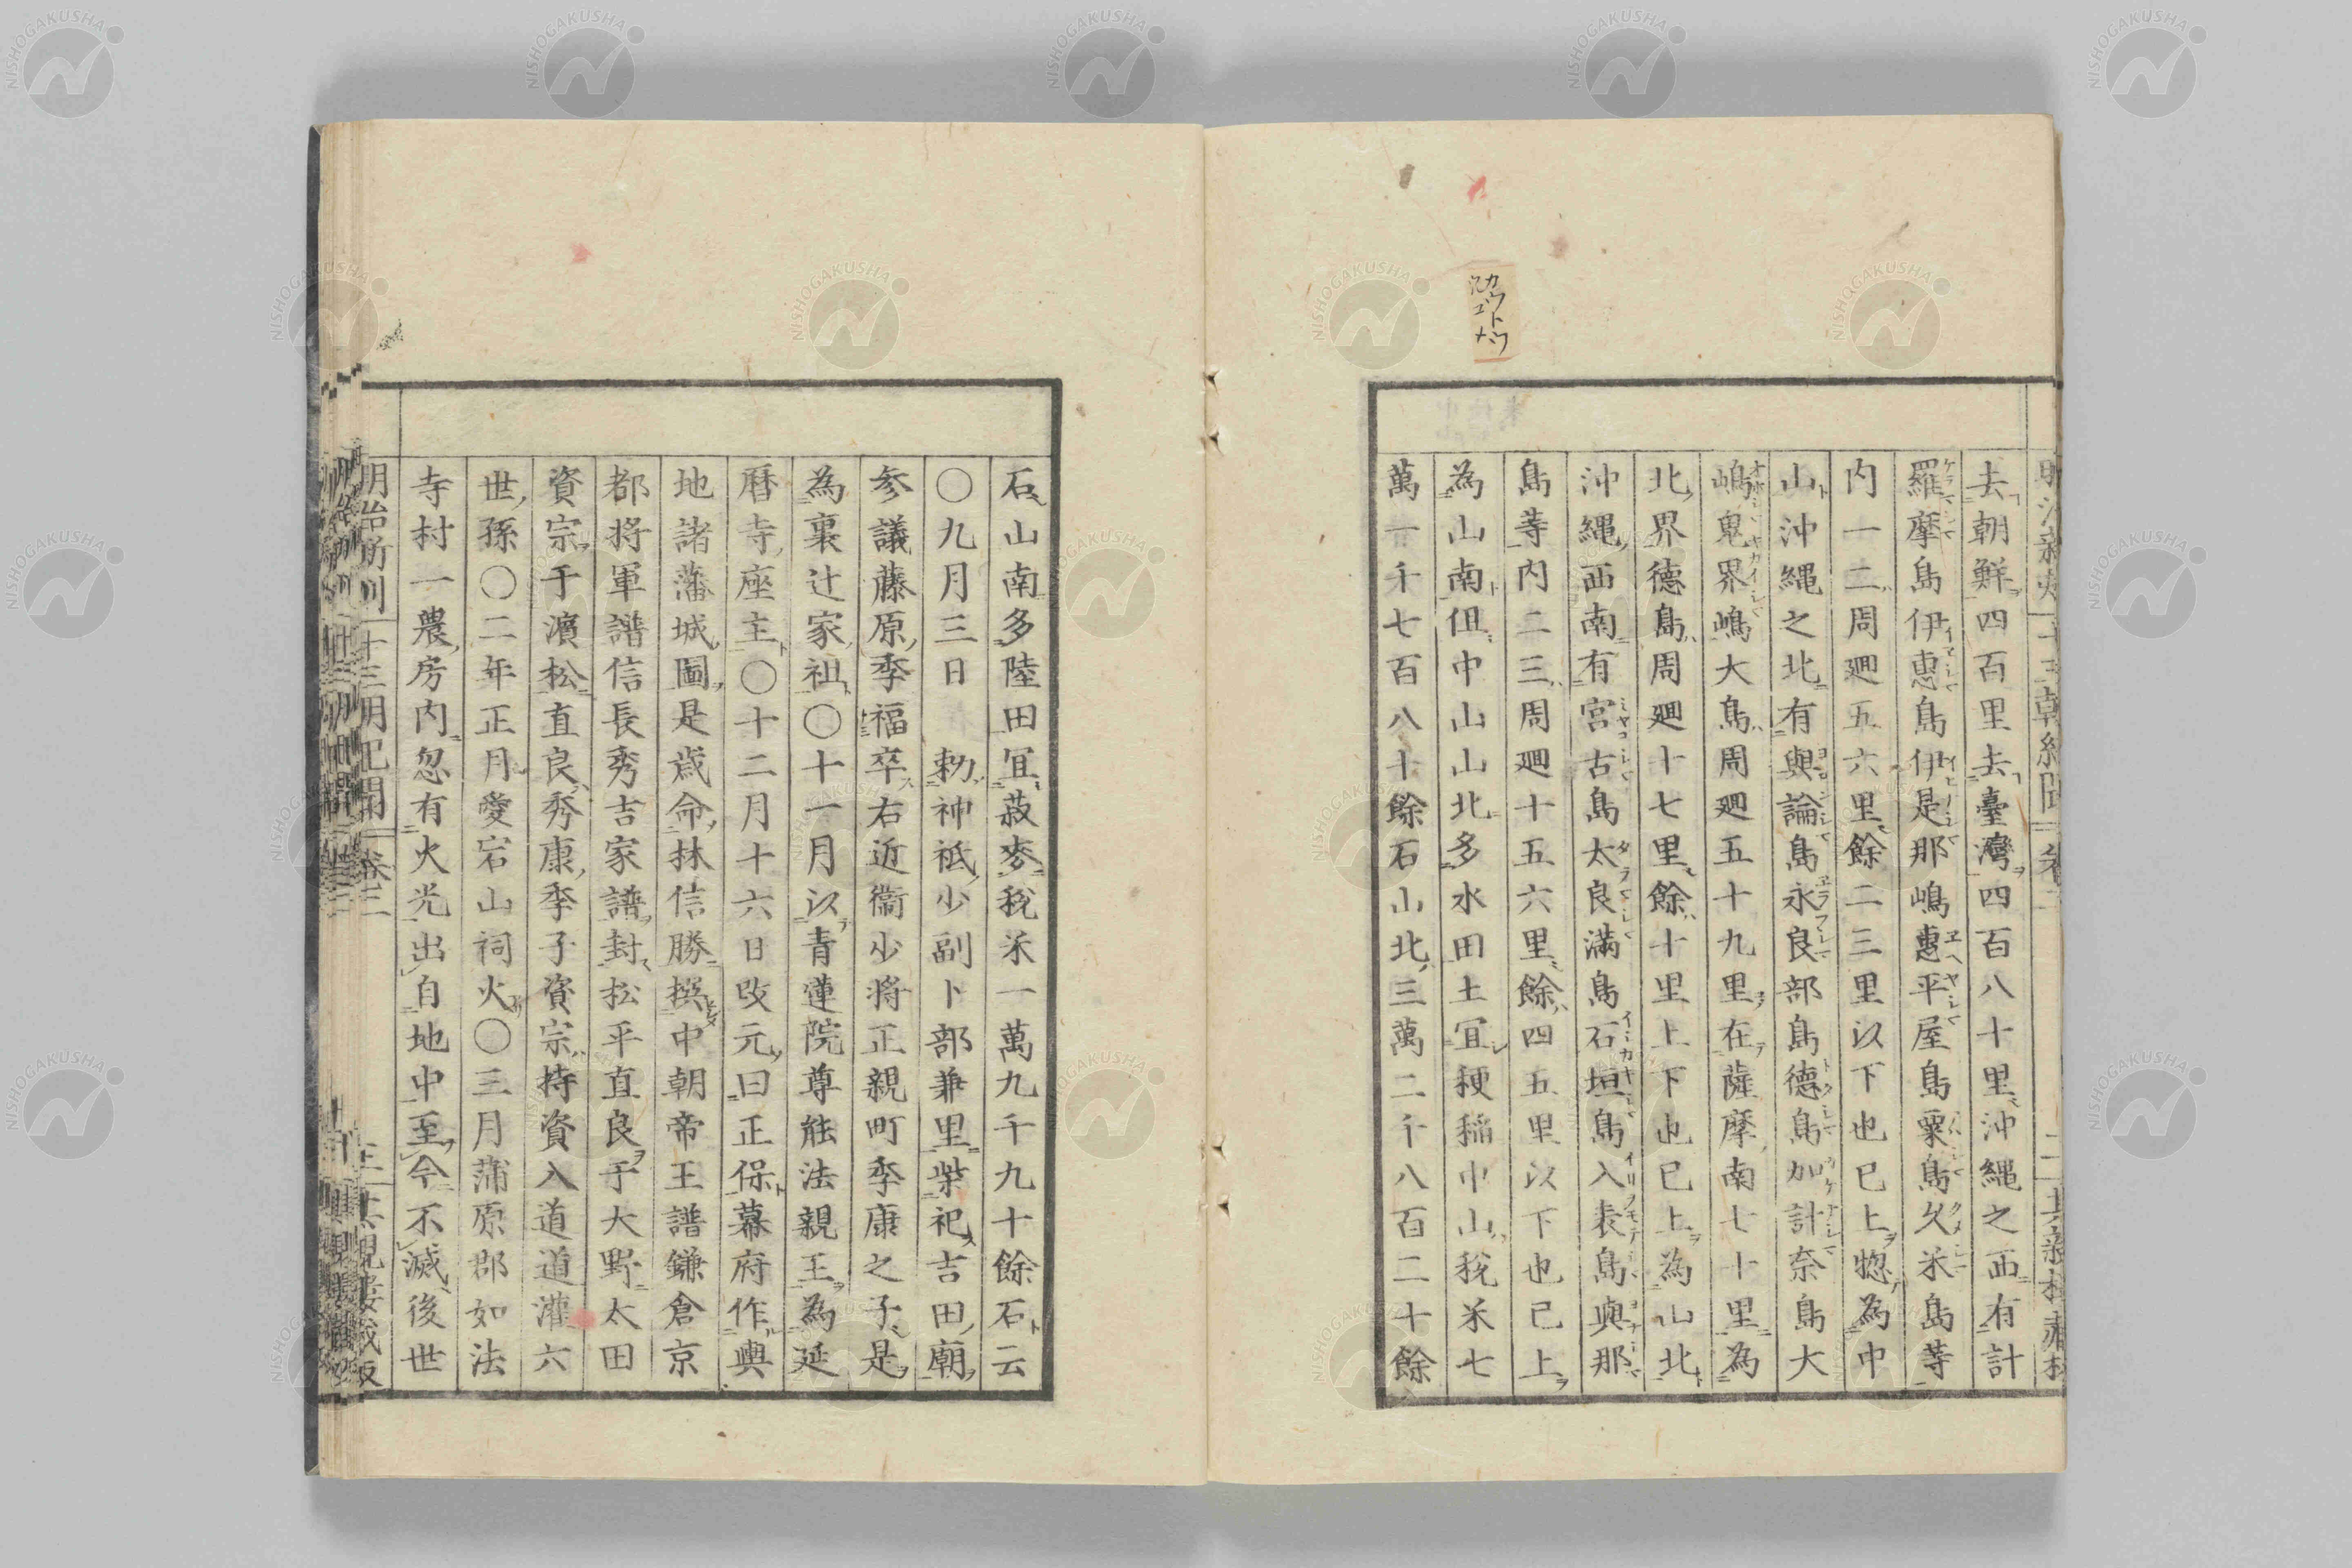 カウトウ
去朝鮮四百里去臺灣四百八十里沖縄之西有計
羅摩島伊惠島伊是那嶋惠平屋島粟島久米島等
内一二周廻五六里餘二三里以下也已上惣為中
山沖縄之北有與論島永良部島德島加計奈島大
嶋鬼界嶋大島周廻五十九里在薩摩南七十里為
北界德島周廻十七里餘十里上下也已上為山北
沖縄西南有宮古島太良満島石垣島入表島與那
島等内二三周廻十五六里餘四五里以下也已上
為山南但中山山北多水田土宜稉稲中山税米七
萬一千七百八十餘石山北三萬二千八百二十餘
石山南多陸田宜菽麥税米一萬九千九十餘石云
〇九月三日 勅神祗少副卜部兼里柴祀吉田廟
参議藤原季福卒右近衞少将正親町季康之子是
為裏辻家祖〇十一月以青蓮院尊能法親王為延
暦寺座主〇十二月十六日改元曰正保幕府作輿
地諸藩城圖是歳命林信勝撰中朝帝王譜鎌倉京
都将軍譜信長秀吉家譜封松平直良于大野太田
資宗于濱松直良秀康季子資宗持資入道道灌六
世孫〇二年正月愛宕山祠火〇三月蒲原郡如法
寺村一農房内忽有火光出自地中至今不滅後世